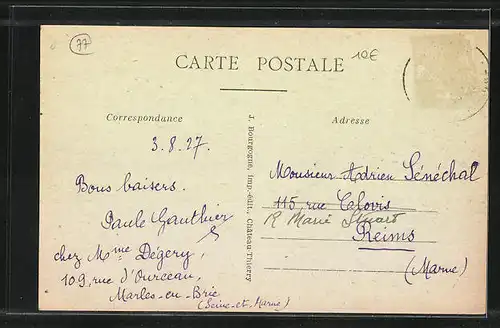 77
10€
CARTE POSTALE
Correspondance
Adresse
3.8.27.
Bons baisers.
Paule Gauthier
chez Mme Dégery,
109, rue d'Ourceau,
Marles-en-Brie
(Seine-et-Marne)
J. Bourgogne, Imp.-édit., Château-Thierry
Monsieur Adrien Sénéchal
115, rue Clovis
R Marie Stuart
Reims
(Marne)